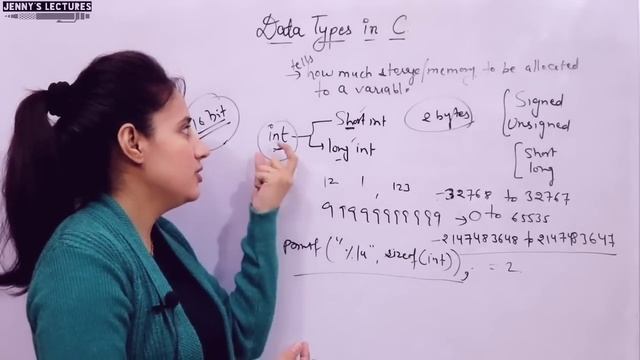 JENNY'S LECTURES
Data Types in C
tells
→ how much storage/memory to be allocated
to a variable.
16 bit
int
Short int
long int
2 bytes
Signed
Unsigned
Short
long
12 1, 123
-32768 to 32767
99999999999
→ 0 to 65535
-2147483648 to 2147483647
printf("%lu", sizeof(int));
= 2